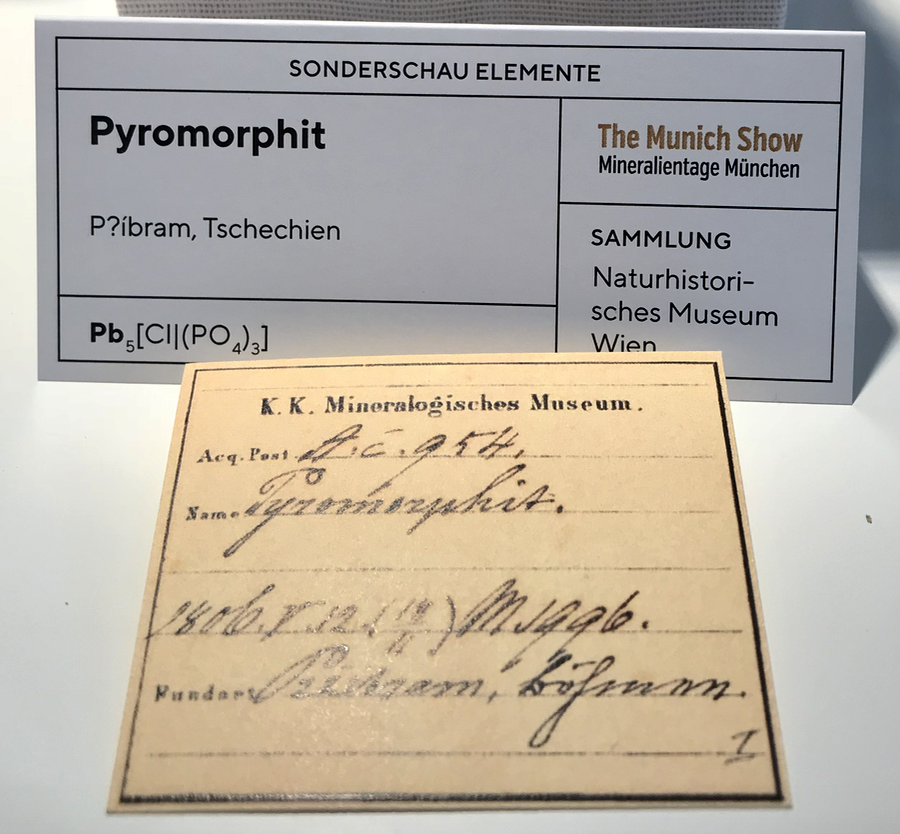 SONDERSCHAU ELEMENTE
Pyromorphit
P?íbram, Tschechien
Pb5[Cl|(PO4)3]
The Munich Show
Mineralientage München
SAMMLUNG
Naturhistori-
sches Museum
Wien
K. K. Mineralogisches Museum.
Acq. Post. A.c. 954.
Name Pyromorphit.
1806. V. 12. M. 1996.
Fundort Böhmen.
I